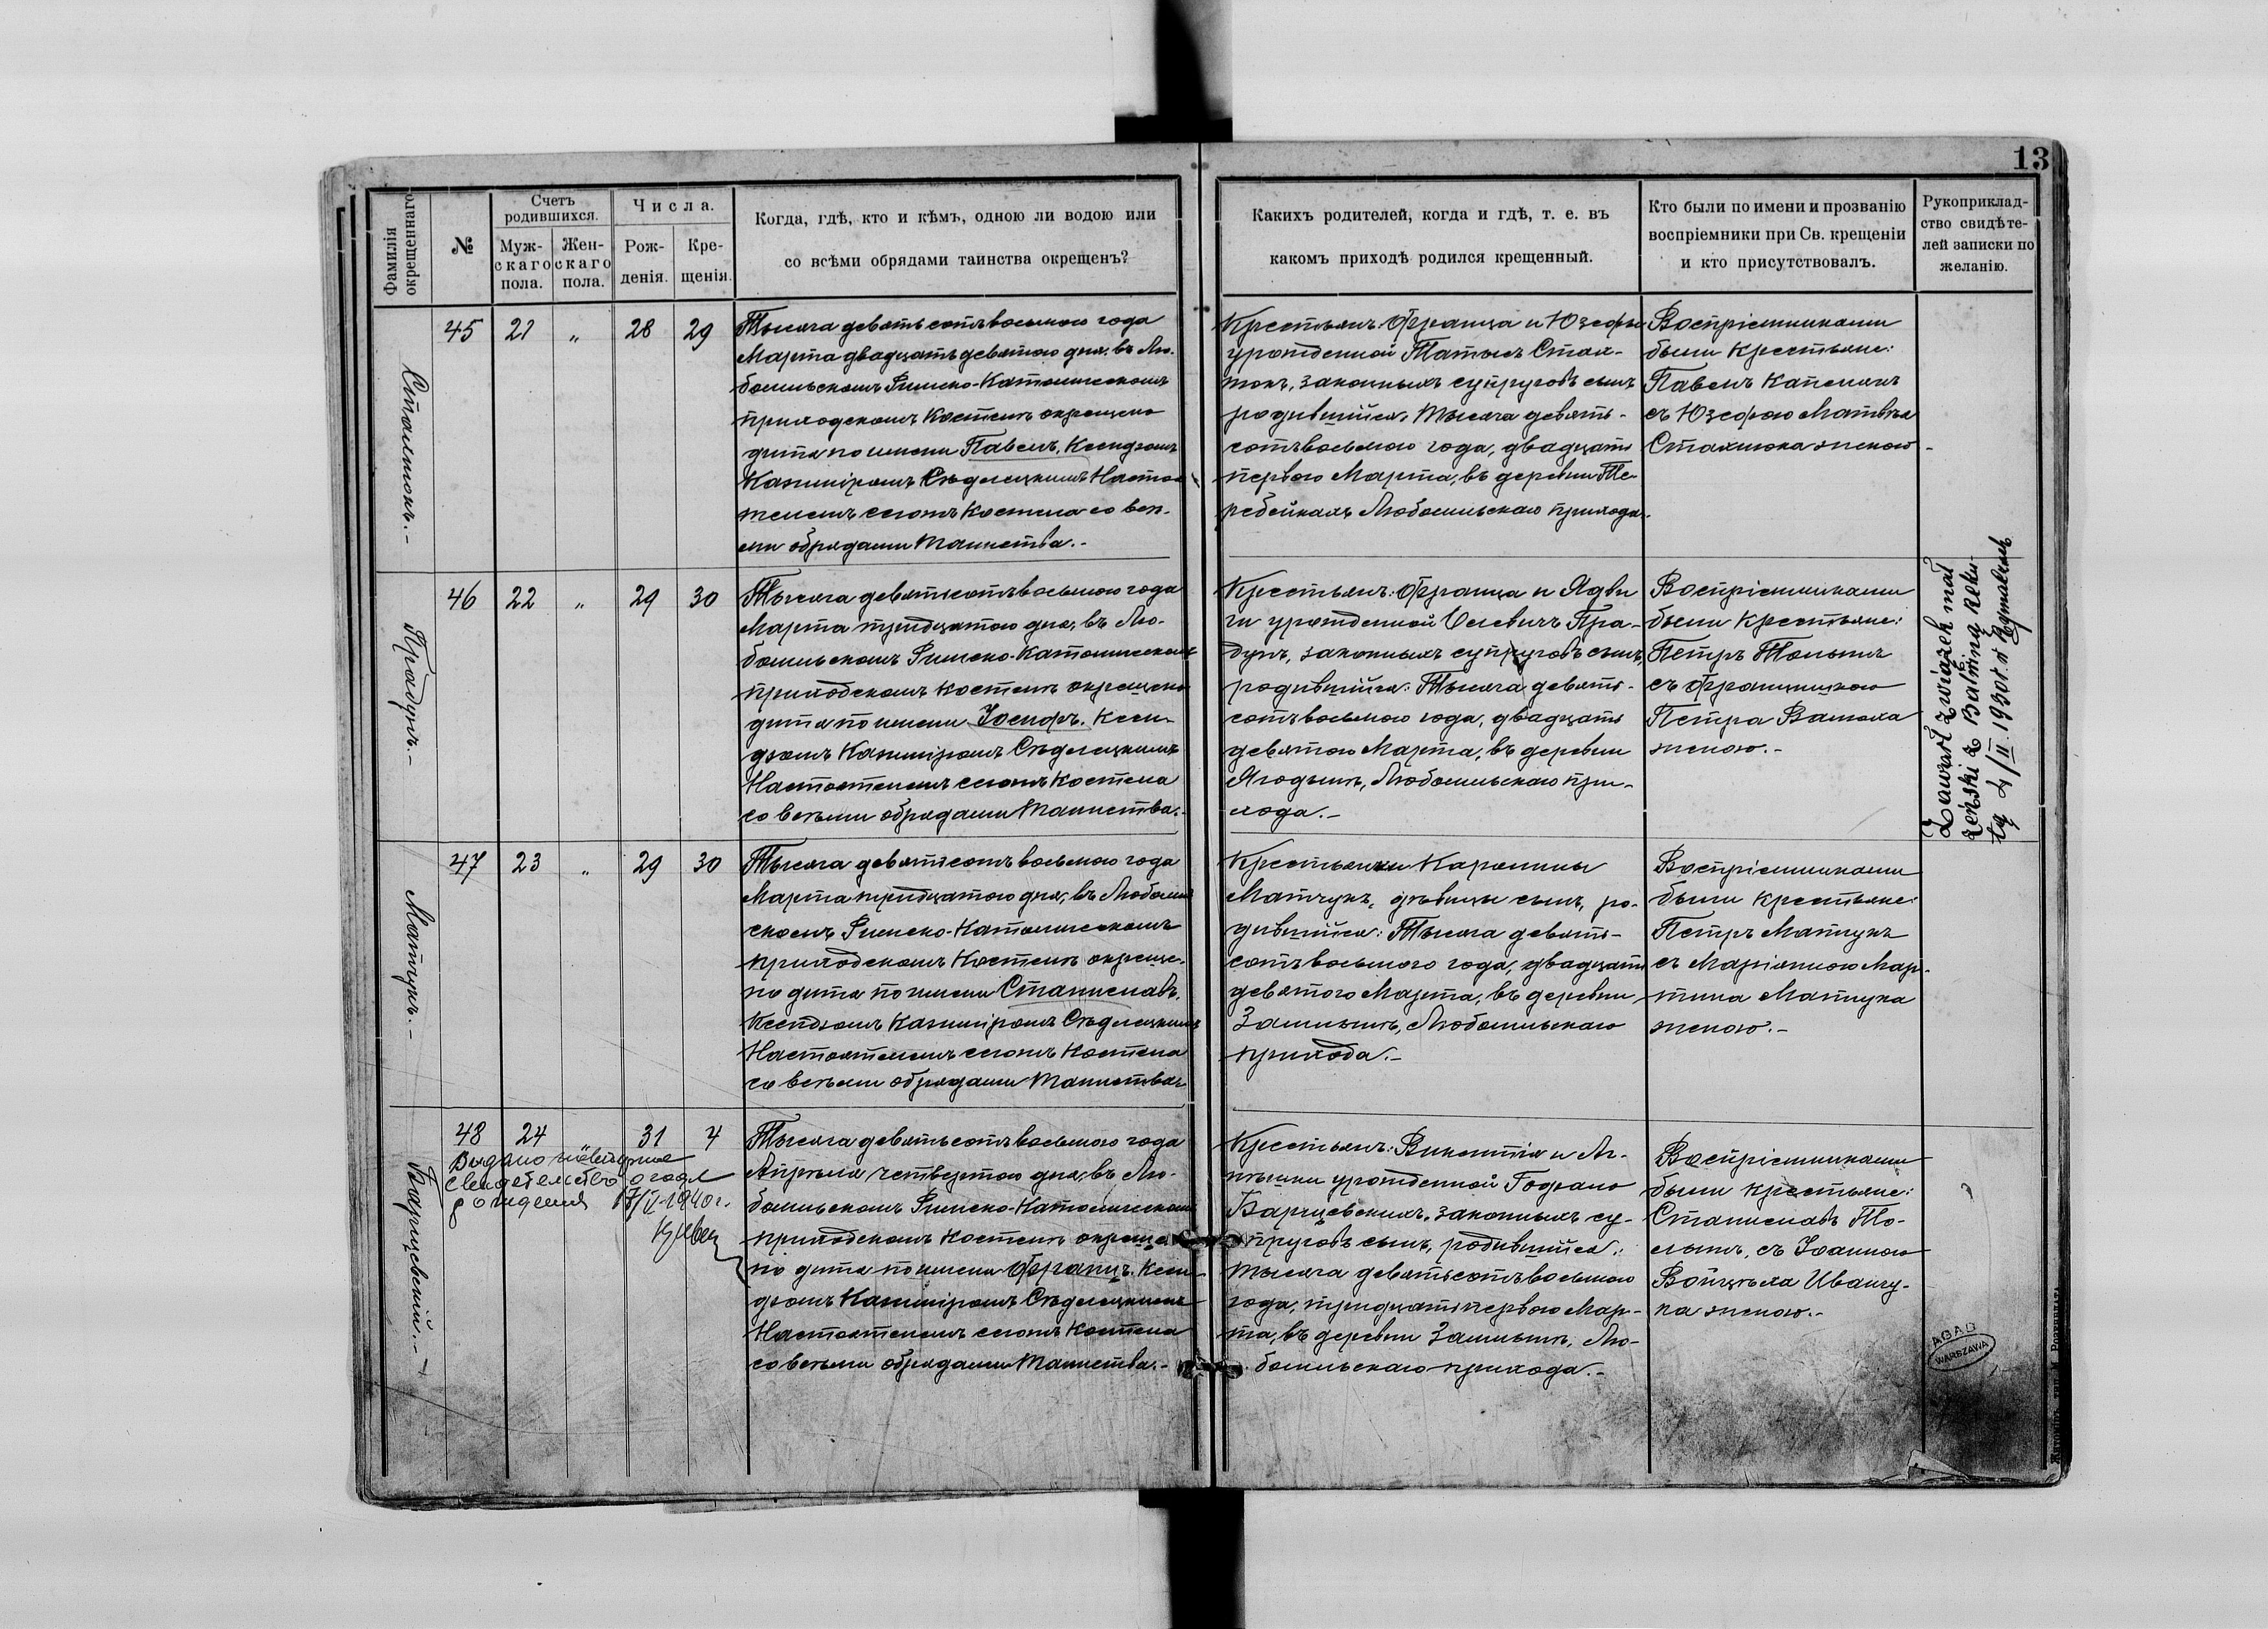 13
Фамилія окрещеннаго
№
Счетъ родившихся.
Муж-
скаго
пола.
Жен-
скаго
пола.
Числа.
Рож-
денія.
Кре-
щенія.
Когда, гдѣ, кто и кѣмъ, одною ли водою или
со всѣми обрядами таинства окрещенъ?
Какихъ родителей, когда и гдѣ, т. е. въ
какомъ приходѣ родился крещенный.
Кто были по имени и прозванію
воспріемники при Св. крещеніи
и кто присутствовалъ.
Рукоприклад-
ство свидѣте-
лей записки по
желанію.
45 21 „ 28 29
Тысяча девятьсотъ восьмого года
Марта двадцать девятого дня, въ Лю-
бомльскомъ Римско-Католическомъ
приходскомъ Костелѣ окрещено
дитя по имени Павелъ, Ксендзомъ
Казиміромъ Сѣдлецкимъ Настоя-
телемъ сего Костела со всѣ-
ми обрядами Таинства.-
Крестьянъ: Франца и Юзефы
урожденной
законныхъ супруговъ сынъ
родившійся: Тысяча девять-
сотъ восьмого года, двадцать
первого Марта, въ деревни Те-
ребейкахъ Любомльскаго прихода.
Воспріемниками
были Крестьяне:
Павелъ
съ Юзефою Матвѣя
женою
46 22 „ 29 30
Прадунъ.-
Тысяча девятьсотъ восьмого года
Марта тридцатого дня, въ Лю-
бомльскомъ Римско-Католическомъ
приходскомъ Костелѣ окрещено
дитя по имени Іосифъ. Ксен-
дзомъ Казиміромъ Сѣдлецкимъ
Настоятелемъ сего Костела
со всѣми обрядами Таинства.-
Крестьянъ: Франца и Ядви-
ги урожденной Пра-
дунъ, законныхъ супруговъ сынъ,
родившійся: Тысяча девять-
сотъ восьмого года, двадцать
девятого Марта, въ деревни
Ягодынѣ, Любомльскаго при-
хода.-
Воспріемниками
были Крестьяне:
Петръ
съ Францишкою
Петра
женою.-
Zawarł związek mał
żeński z
4/II 1930 r. w
47 23 „ 29 30
Матчукъ.-
Тысяча девятьсотъ восьмого года
Марта тридцатого дня, въ Любомль
скомъ Римско-Католическомъ
приходскомъ Костелѣ окреще-
но дитя по имени Станиславъ.
Ксендзомъ Казиміромъ Сѣдлецкимъ
Настоятелемъ сего Костела
со всѣми обрядами Таинства.
Крестьянки Каролины
Матчукъ, дѣвицы сынъ, ро-
дившійся: Тысяча девять-
сотъ восьмого года, двадцать
девятого Марта, въ деревни
Любомльскаго
прихода.-
Воспріемниками
были Крестьяне:
Петръ Матчукъ
съ Маріанною Мар-
тина Матчука
женою.-
48 24 „ 31 4
Выдано повторное
свидетельство о годе
рождения 17/IV-1940 г.
Барщевскій.-
Тысяча девятьсотъ восьмого года
Апрѣля четвертого дня, въ Лю-
бомльскомъ Римско-Католическомъ
приходскомъ Костелѣ окреще-
но дитя по имени Францъ. Ксен-
дзомъ Казиміромъ Сѣдлецкимъ
Настоятелемъ сего Костела
со всѣми обрядами Таинства.-
Крестьянъ: Викентія и Аг-
нѣшки урожденной
Барщевскихъ, законныхъ су-
пруговъ сынъ, родившійся:
тысяча девятьсотъ восьмого
года, тридцать первого Мар-
та, въ деревни Лю-
бомльскаго прихода.-
Воспріемниками
были крестьяне:
Станиславъ
съ Іоанною
Войцѣха Иванчу-
ка женою.-
AGAD
WARSZAWA